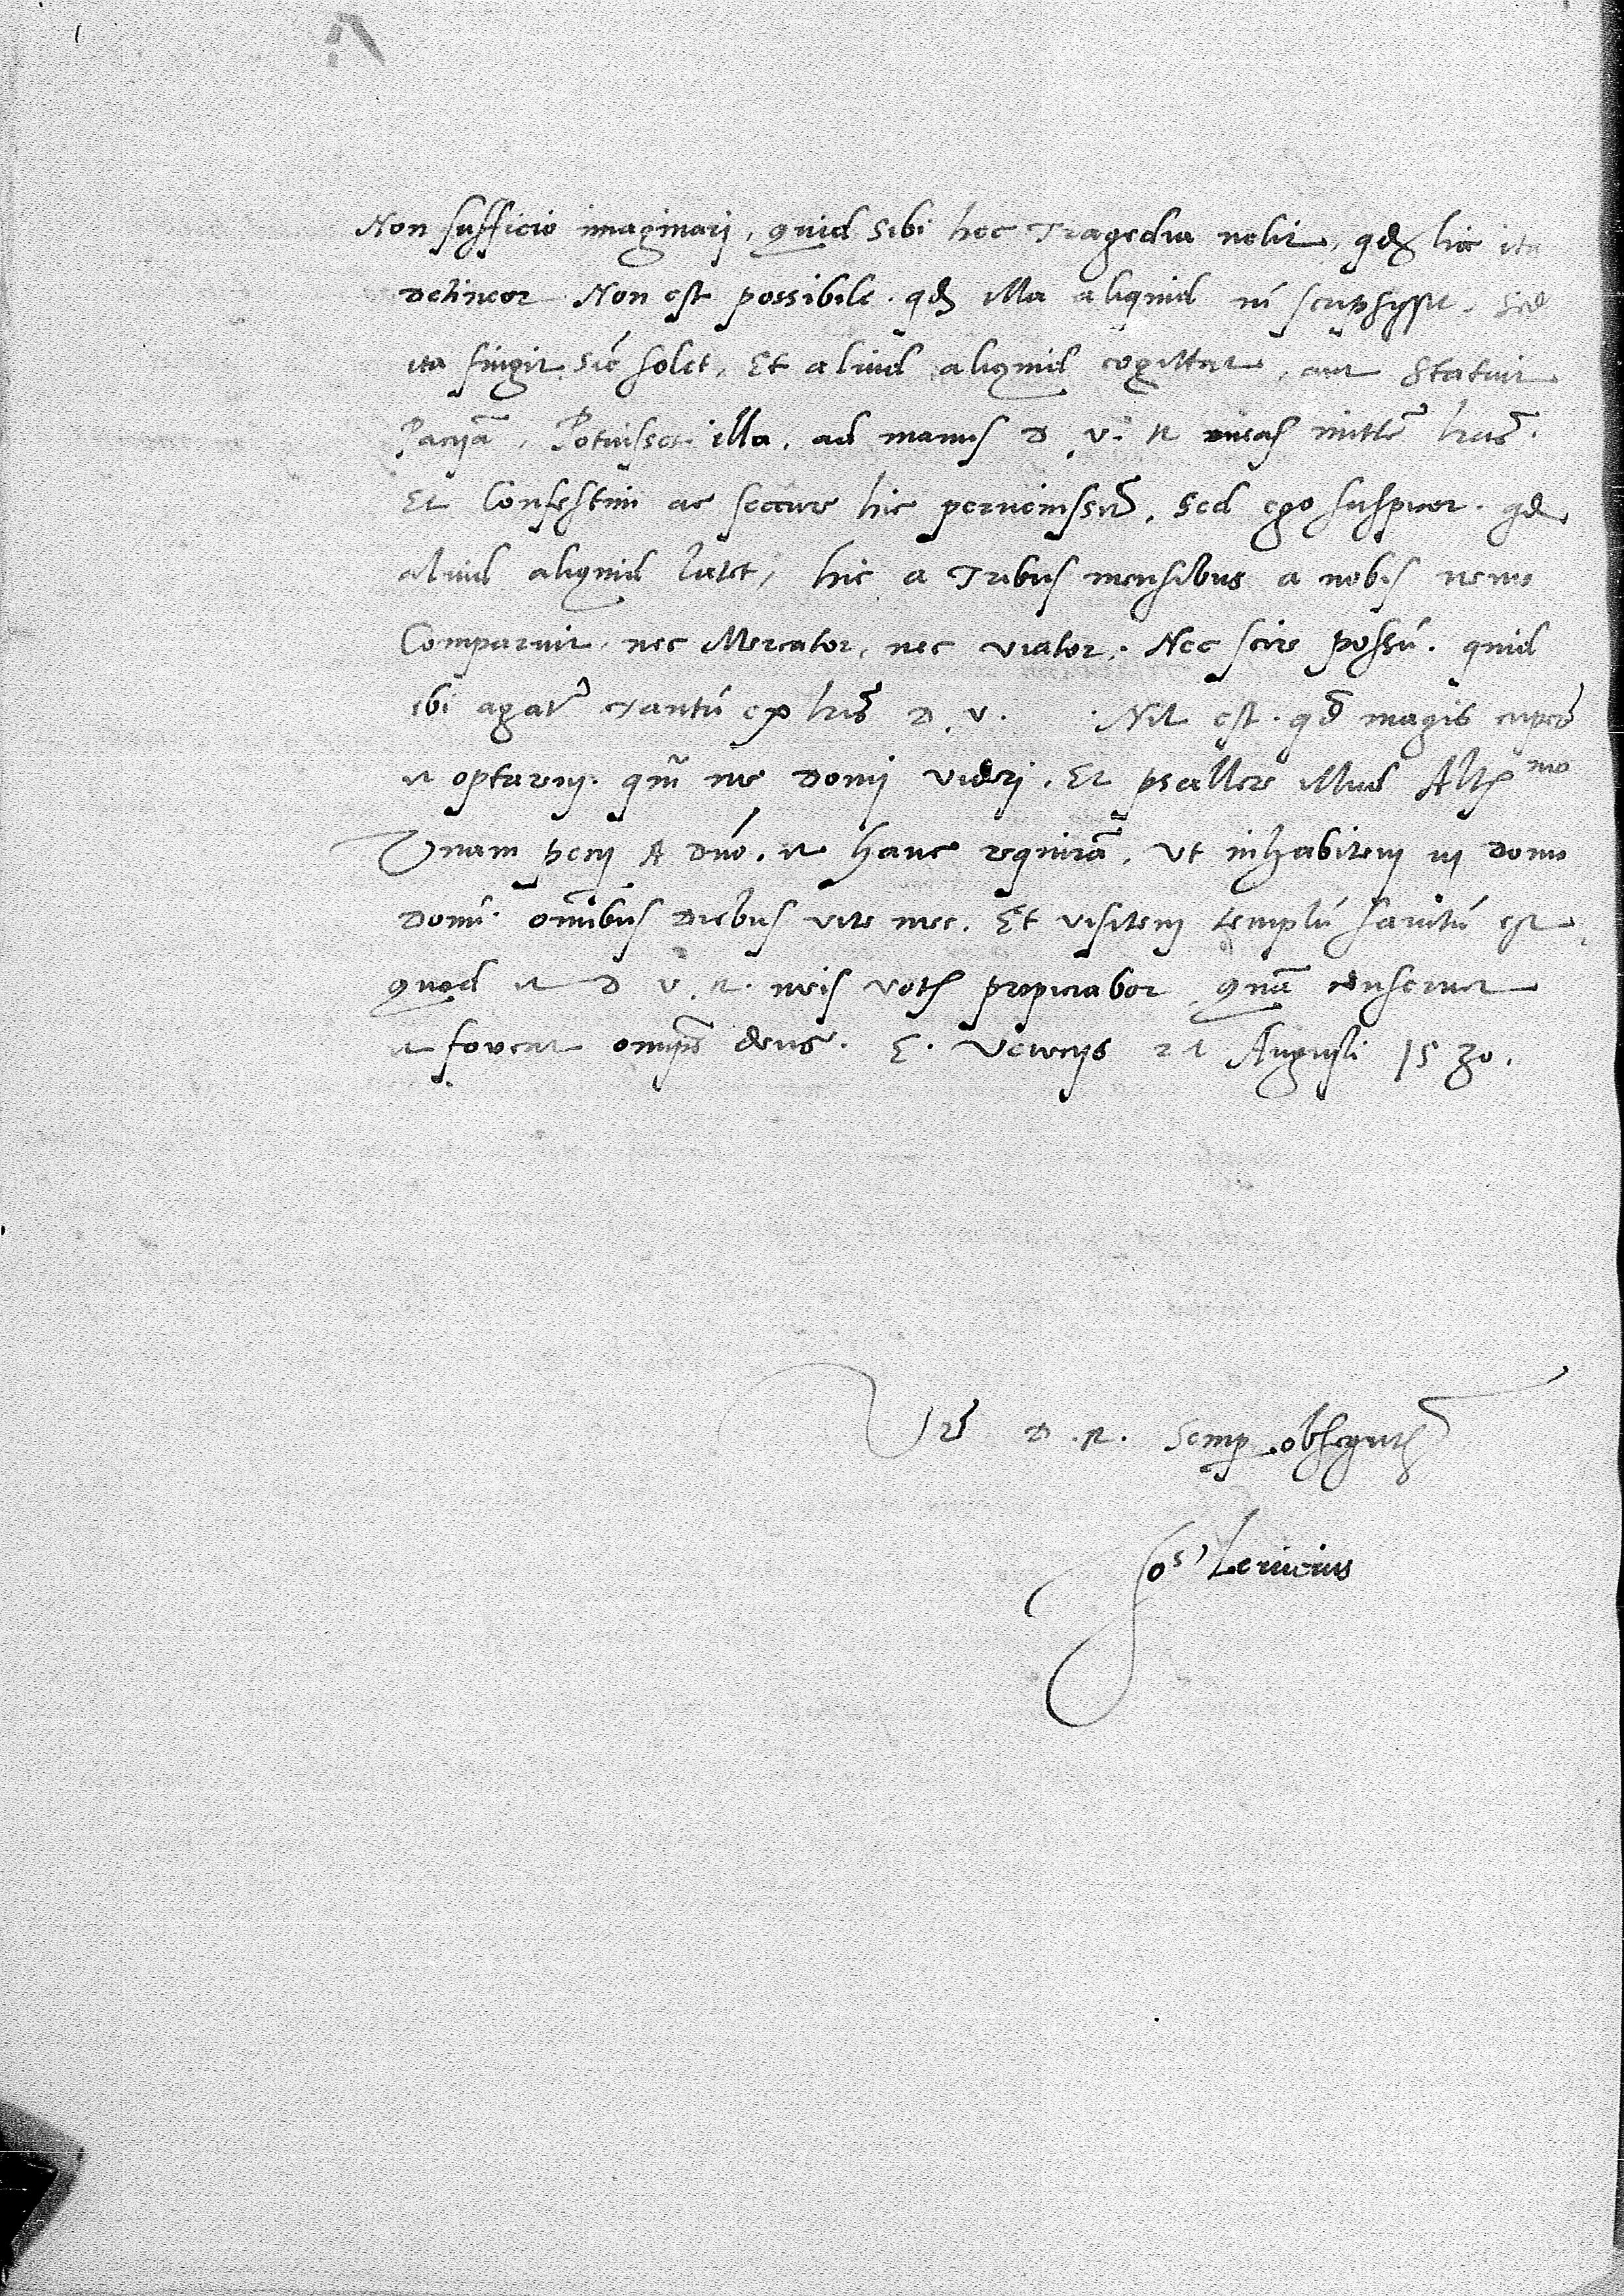 Non sufficio imaginarj, quid sibi hec Tragedia velit, qd hic ita
detineor Non est possibile. qd illa aliquid nō scripsisset, sed
ita fingit, sic solet, Et aliud aliquid cogittat, aut statuit
Potuisset illa, ad manus D. V. R meas mittē lrās.
Et Confestim ac secure hic pervenissēt, Sed ego suspicor. qd
aliud aliquid latet, hic a Tribus mensibus a nobis nemo
Comparuit, nec Mercator, nec viator. Nec scire possū. quid
ibi agat tantū ex lris D. V. Nil est. qd magis cuperē
et optarem. qm̄ me domj viderj. Et psallere illud Altmo
Unam petij A dn̄o. et hanc requirā. Ut inhabitem in domo
Domi. om̄ibus Diebus vite mee. Et visitem templū sanctū eſt
quod et D. V. R. meis votis precabor quā conservet
et foveat omps deus. E. 21 Augusti 1530.
Vre D. R. Semp obsequtis
Jos Levicius